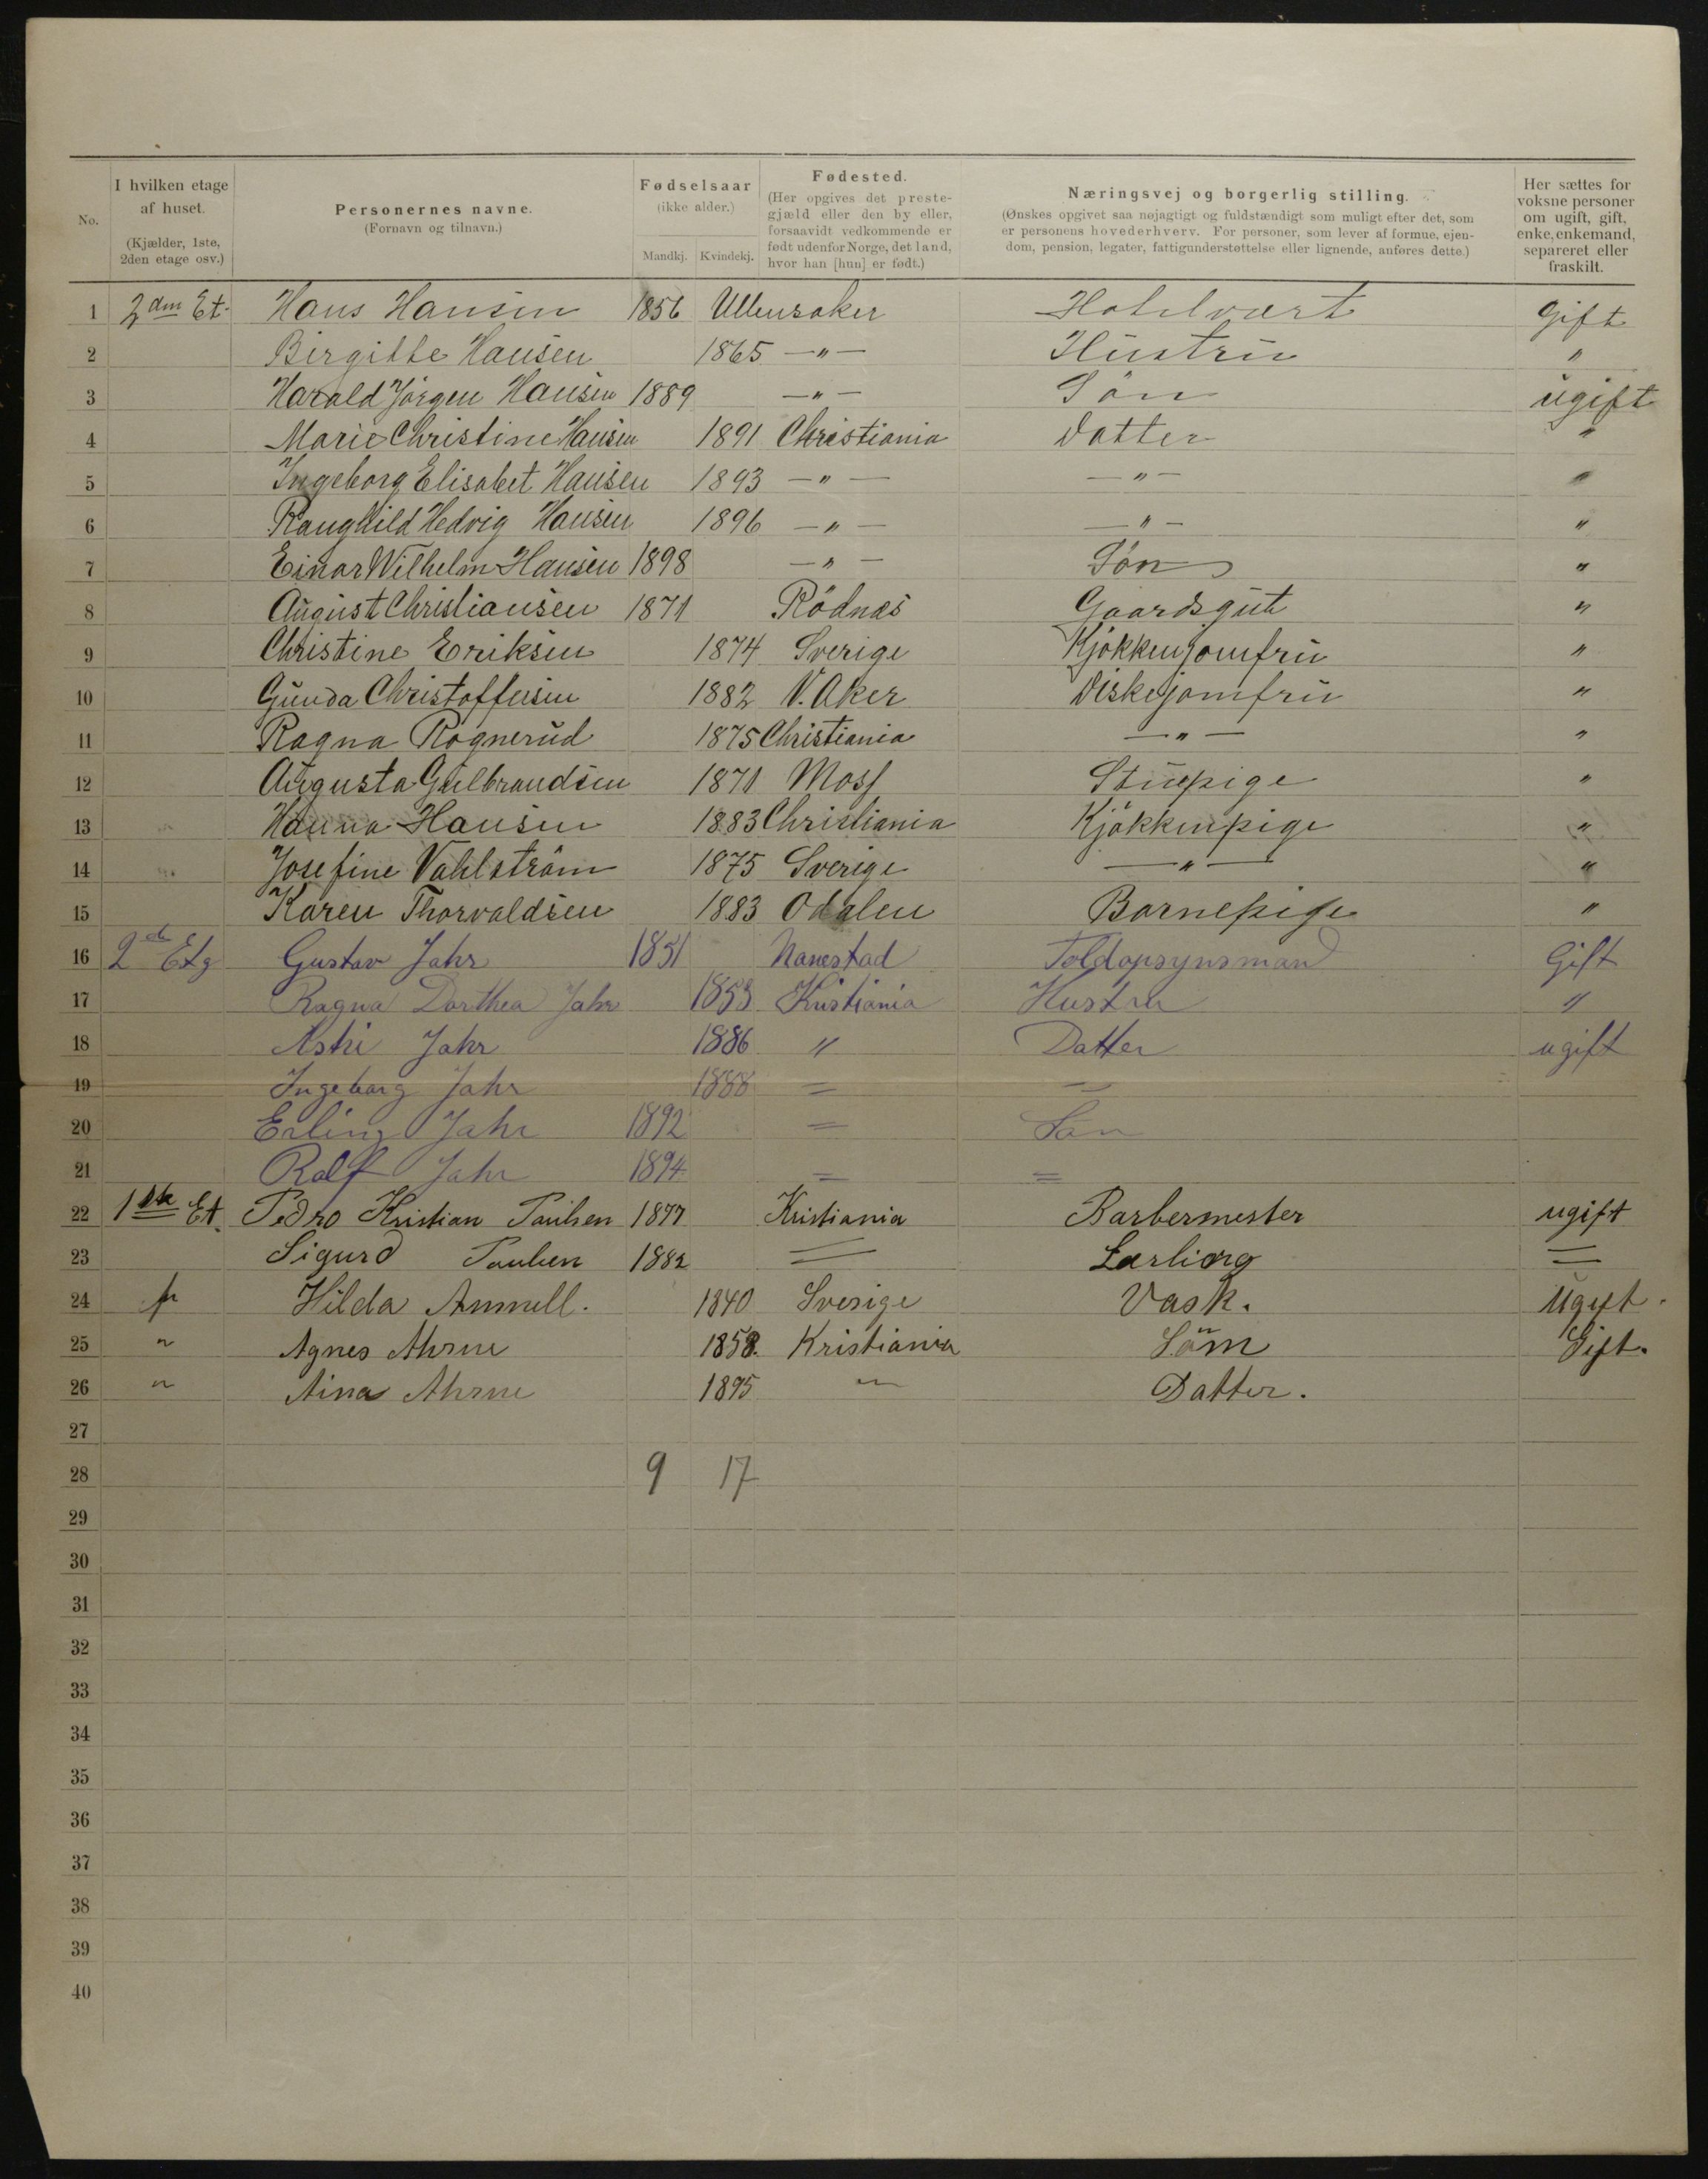 No.
I hvilken etage af huset.
(Kjælder, 1ste, 2den etage osv.)
Personernes navne.
(Fornavn og tilnavn.)
Fødselsaar
(ikke alder.)
Mandkj. Kvindekj.
Fødested.
(Her opgives det prestegjæld eller den by eller, forsaavidt vedkommende er født udenfor Norge, det land, hvor han [hun] er født.)
Næringsvej og borgerlig stilling.
(Ønskes opgivet saa nøjagtigt og fuldstændigt som muligt efter det, som er personens hovederhverv. For personer, som lever af formue, ejendom, pension, legater, fattigunderstøttelse eller lignende, anføres dette.)
Her sættes for voksne personer om ugift, gift, enke, enkemand, separeret eller fraskilt.
1 2den Et. Hans Hansen 1856 Ullensaker Hotelvært Gift
2 Birgitte Hansen 1865 —"— Hustru "
3 Harald Jörgen Hansen 1889 —"— Sön ugift
4 Marie Christine Hansen 1891 Christiania Datter "
5 Ingeborg Elisabet Hansen 1893 —"— —"— "
6 Ranghild Hedvig Hansen 1896 —"— —"— "
7 Einar Wilhelm Hansen 1898 —"— Sön "
8 August Christiansen 1871 Rödnæs Gaardsgut "
9 Christine Eriksen 1874 Sverige Kjökkenjomfru "
10 Gunda Christoffersen 1882 V. Aker Diskejomfru "
11 Ragna Rognerud 1875 Christiania —"— "
12 Augusta Gulbrandsen 1871 Moss Stuepige "
13 Hanna Hansen 1883 Christiania Kjökkenpige "
14 Josefine Vahlström 1875 Sverige —"— "
15 Karen Thorvaldsen 1883 Odalen Barnepige "
16 2de Etg Gustav Jahr 1851 Nanestad Toldopsynsmand Gift
17 Ragna Dorthea Jahr 1853 Kristiania Hustru "
18 Jahr 1886 " Datter ugift
19 Ingeborg Jahr 1888 = =
20 Erling Jahr 1892 = Sön
21 Rolf Jahr 1894 = =
22 1ste Et. Pedro Kristian Paulsen 1877 Kristiania Barbermester ugift
23 Sigurd Paulsen 1882 = Lærling =
24 " Hilda 1840 Sverige Vask. Ugift.
25 " Agnes Ahrne 1858. Kristiania Söm Gift.
26 " Aina Ahrne 1895 " Datter.
27
28 9 17
29
30
31
32
33
34
35
36
37
38
39
40